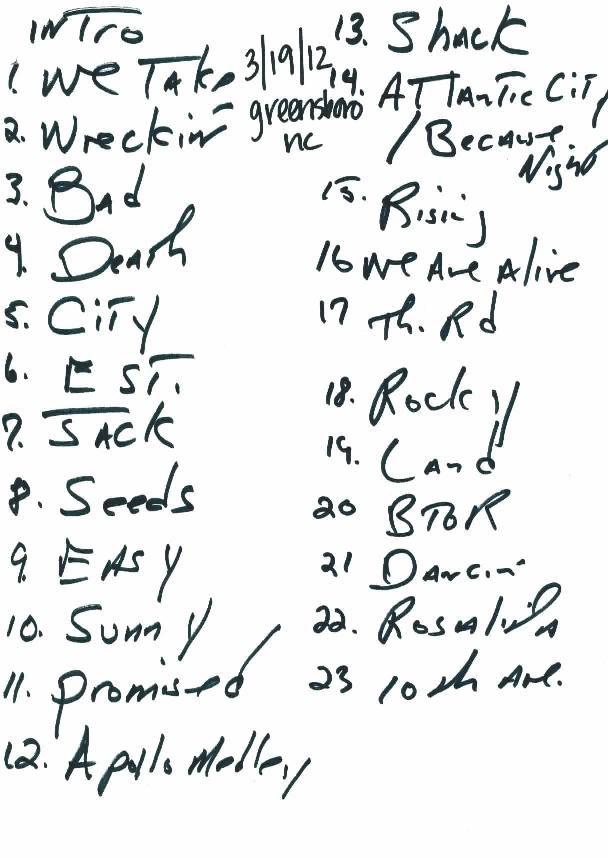 INTRO
1. WE TAKE
2. Wreckin
3. BAD
4. DEATH
5. CITY
6. E ST.
7. JACK
8. Seeds
9. EASY
10. SUNNY
11. promised
12. Apollo Medley
3/19/12
greensboro
nc
13. Shack
14. ATLANTIC CITY
/ BECAUSE
Night
15. Rising
16 WE ARE Alive
17 Th. Rd
18. Rocky
19. Land
20 BTOR
21 Dancin
22. Rosalita
23 10th Ave.